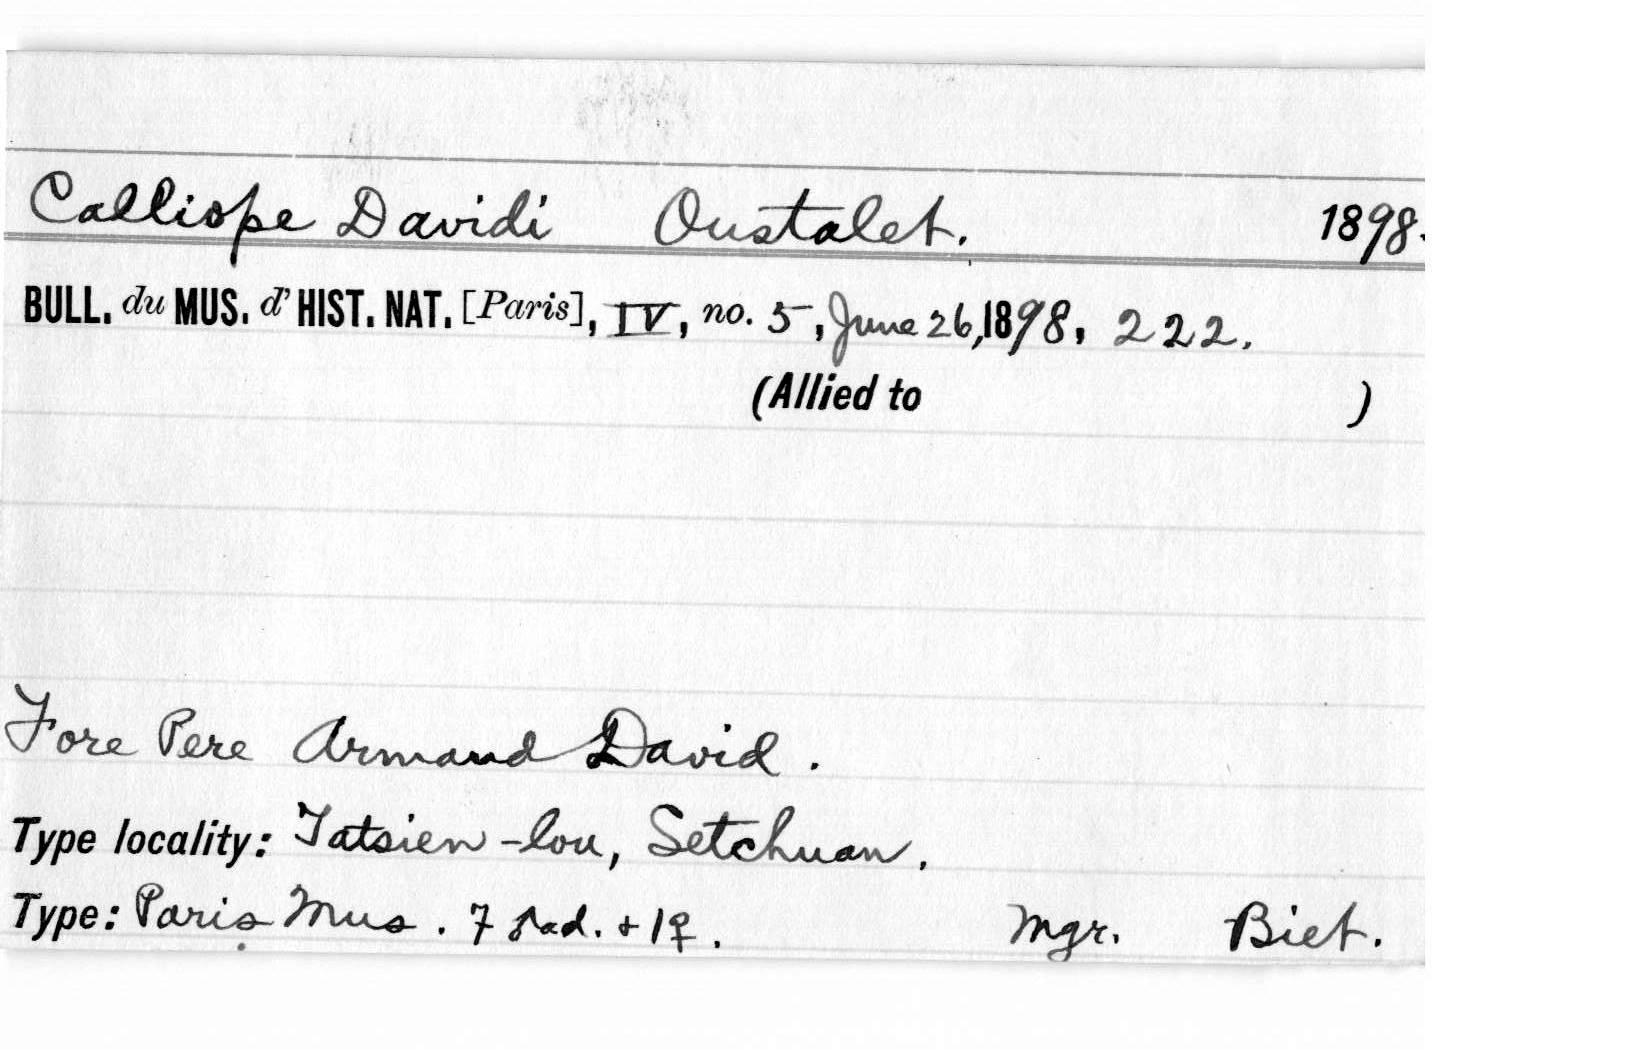 Calliope Davidi Oustalet. 1898.
BULL. du MUS. d' HIST. NAT. [Paris], IV, no. 5, June 26, 1898, 222.
(Allied to )
Fore Pere Armand David.
Type locality: Tatsien-lou, Setchuan.
Type: Paris Mus. 7 ♂ad. + 1♀. Mgr. Biet.